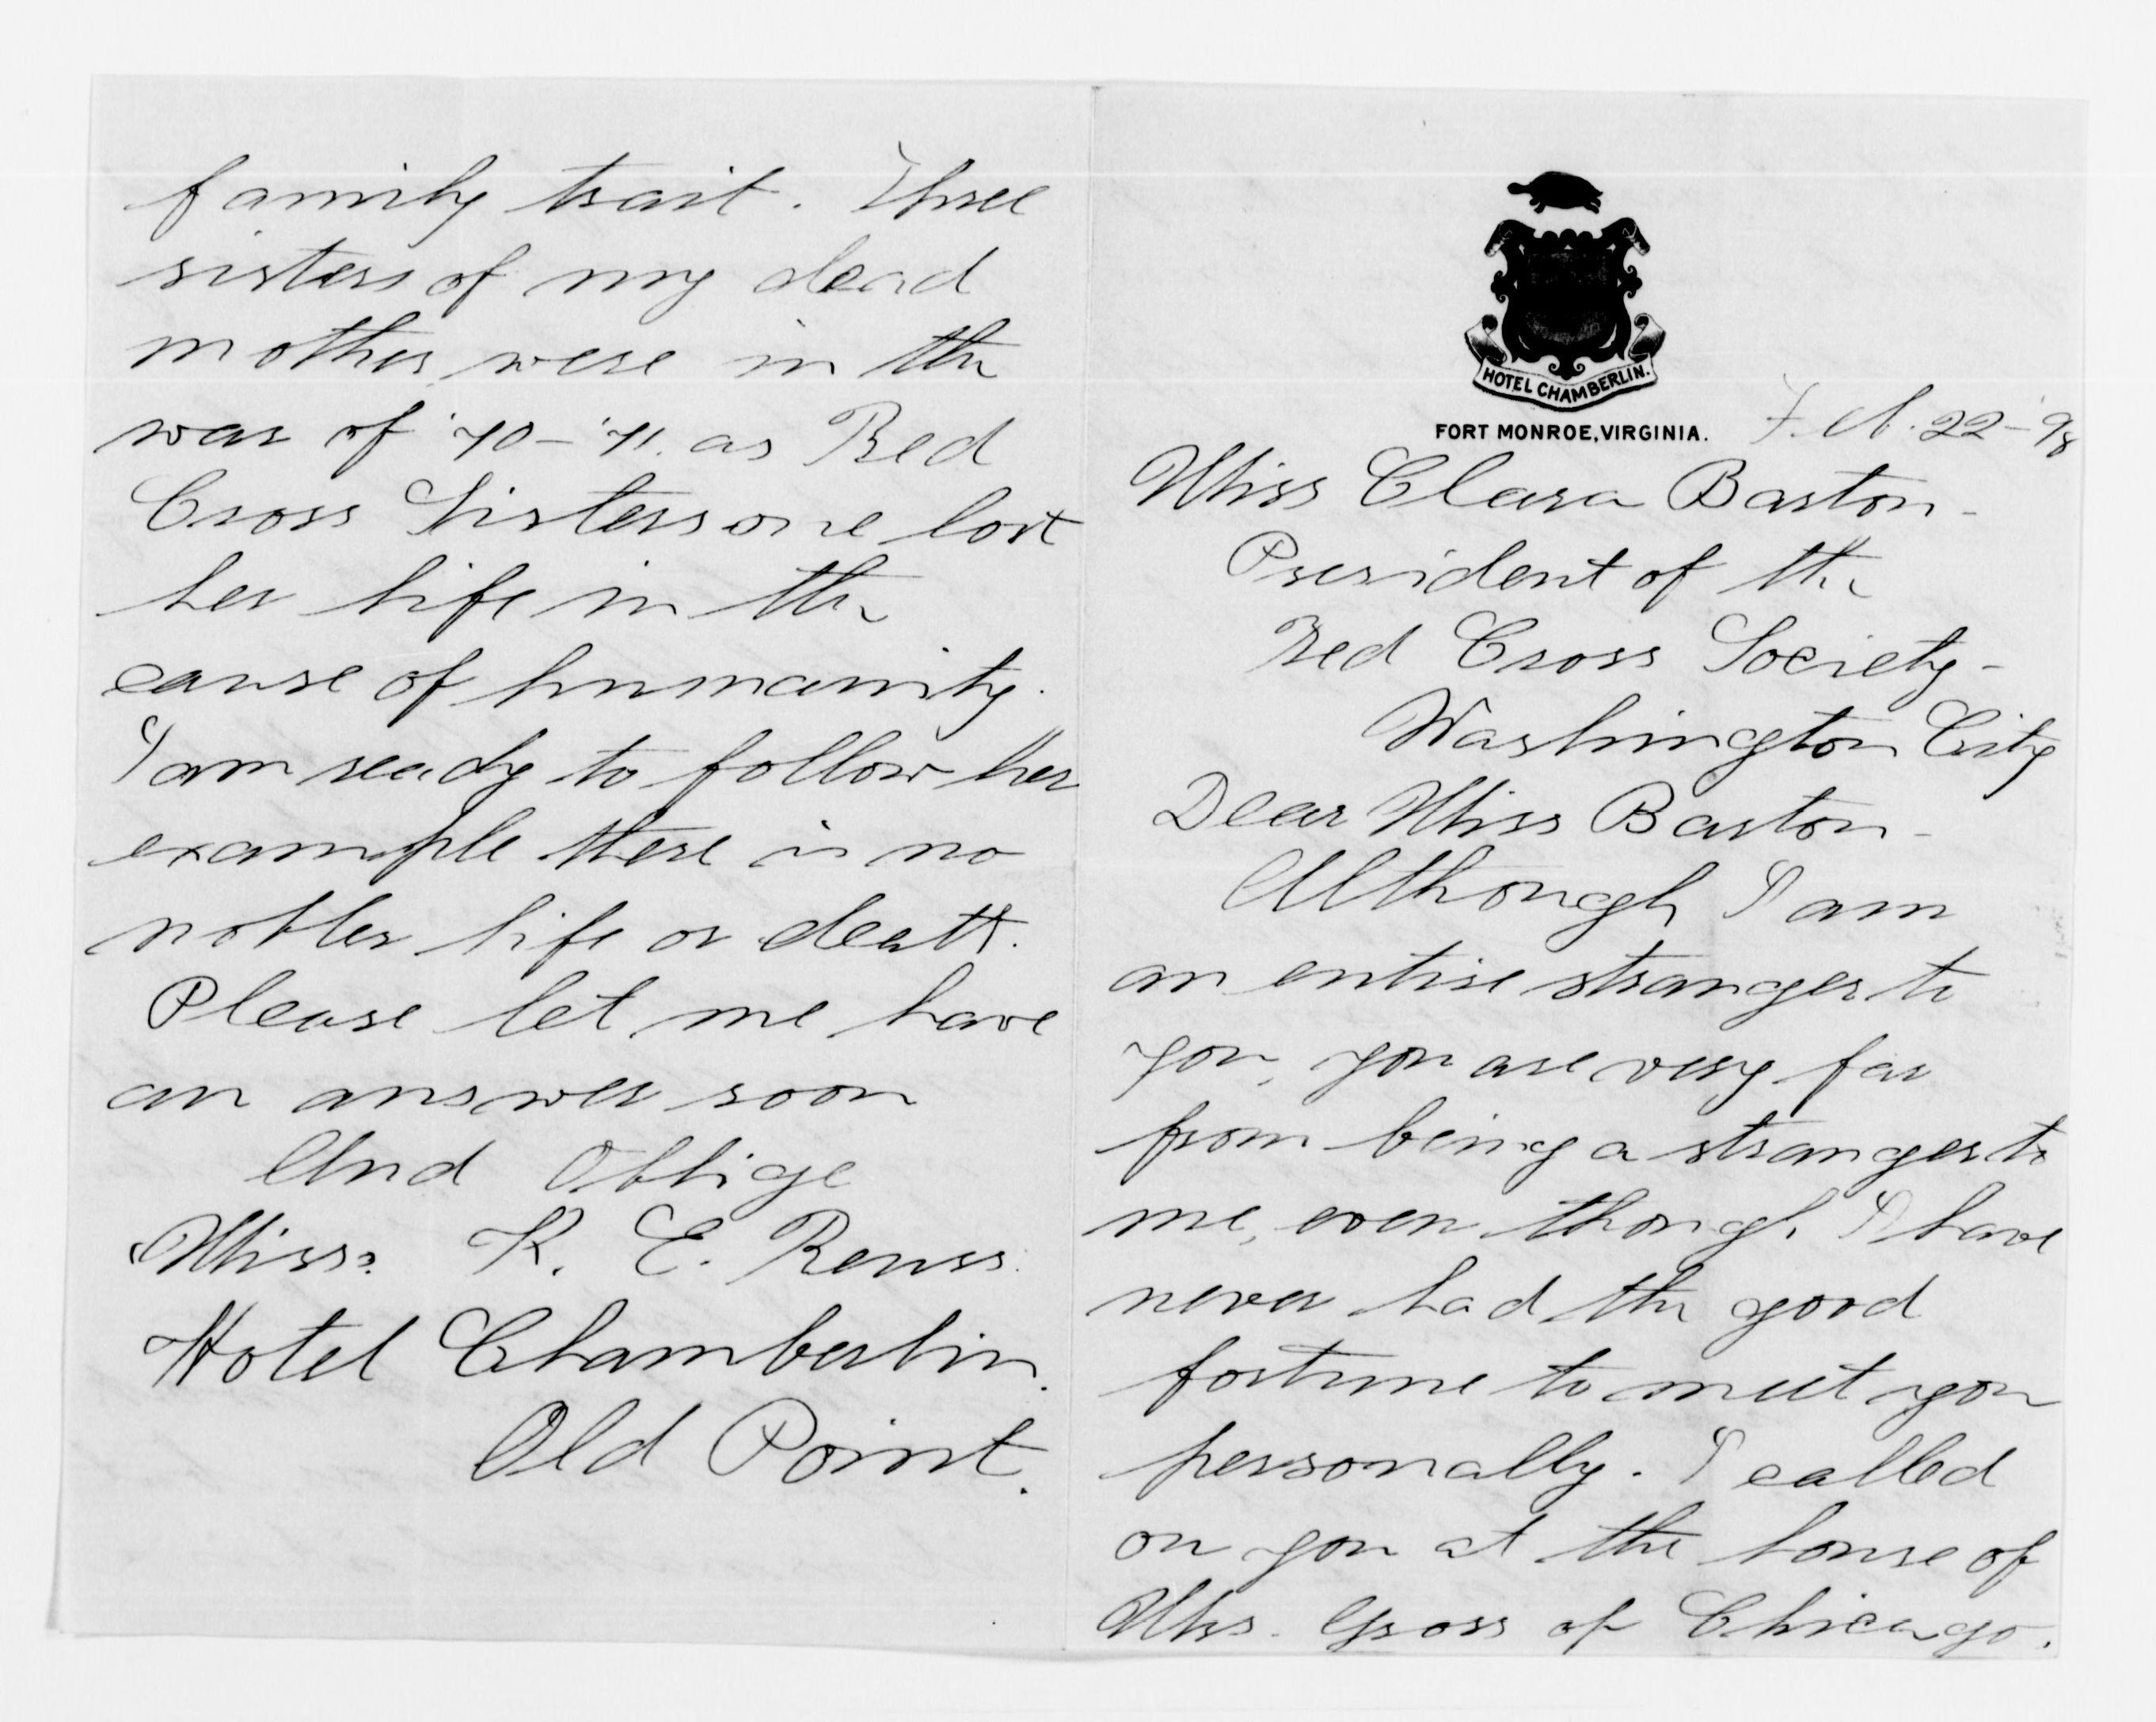 HOTEL CHAMBERLIN.
FORT MONROE, VIRGINIA.
Feb. 22-'98
Miss Clara Barton-
President of the
Red Cross Society-
Washington City
Dear Miss Barton-
Although I am
an entire stranger to
you, you are very far
from being a stranger to
me, even though I have
never had the good
fortune to meet you
personally. I called
on you at the house of
Mrs. Gross of Chicago.
family trait. Three
sisters of my dead
mother, were in the
war of '70-'71. as Red
Cross Sisters one lost
her life in the
cause of humanity.
I am ready to follow her
example there is no
nobler life or death.
Please let me have
an answer soon
And Oblige
Miss. K. E. Reuss.
Hotel Chamberlin.
Old Point.